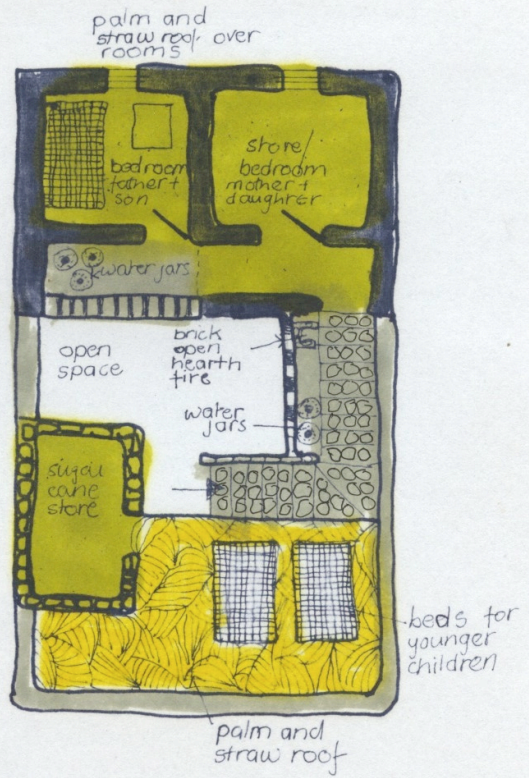 palm and
straw roof over
rooms
bedroom
father +
son
store/
bedroom
mother +
daughter
water jars
open
space
brick
open
hearth
fire
water
jars
sugar
cane
store
beds for
younger
children
palm and
straw roof